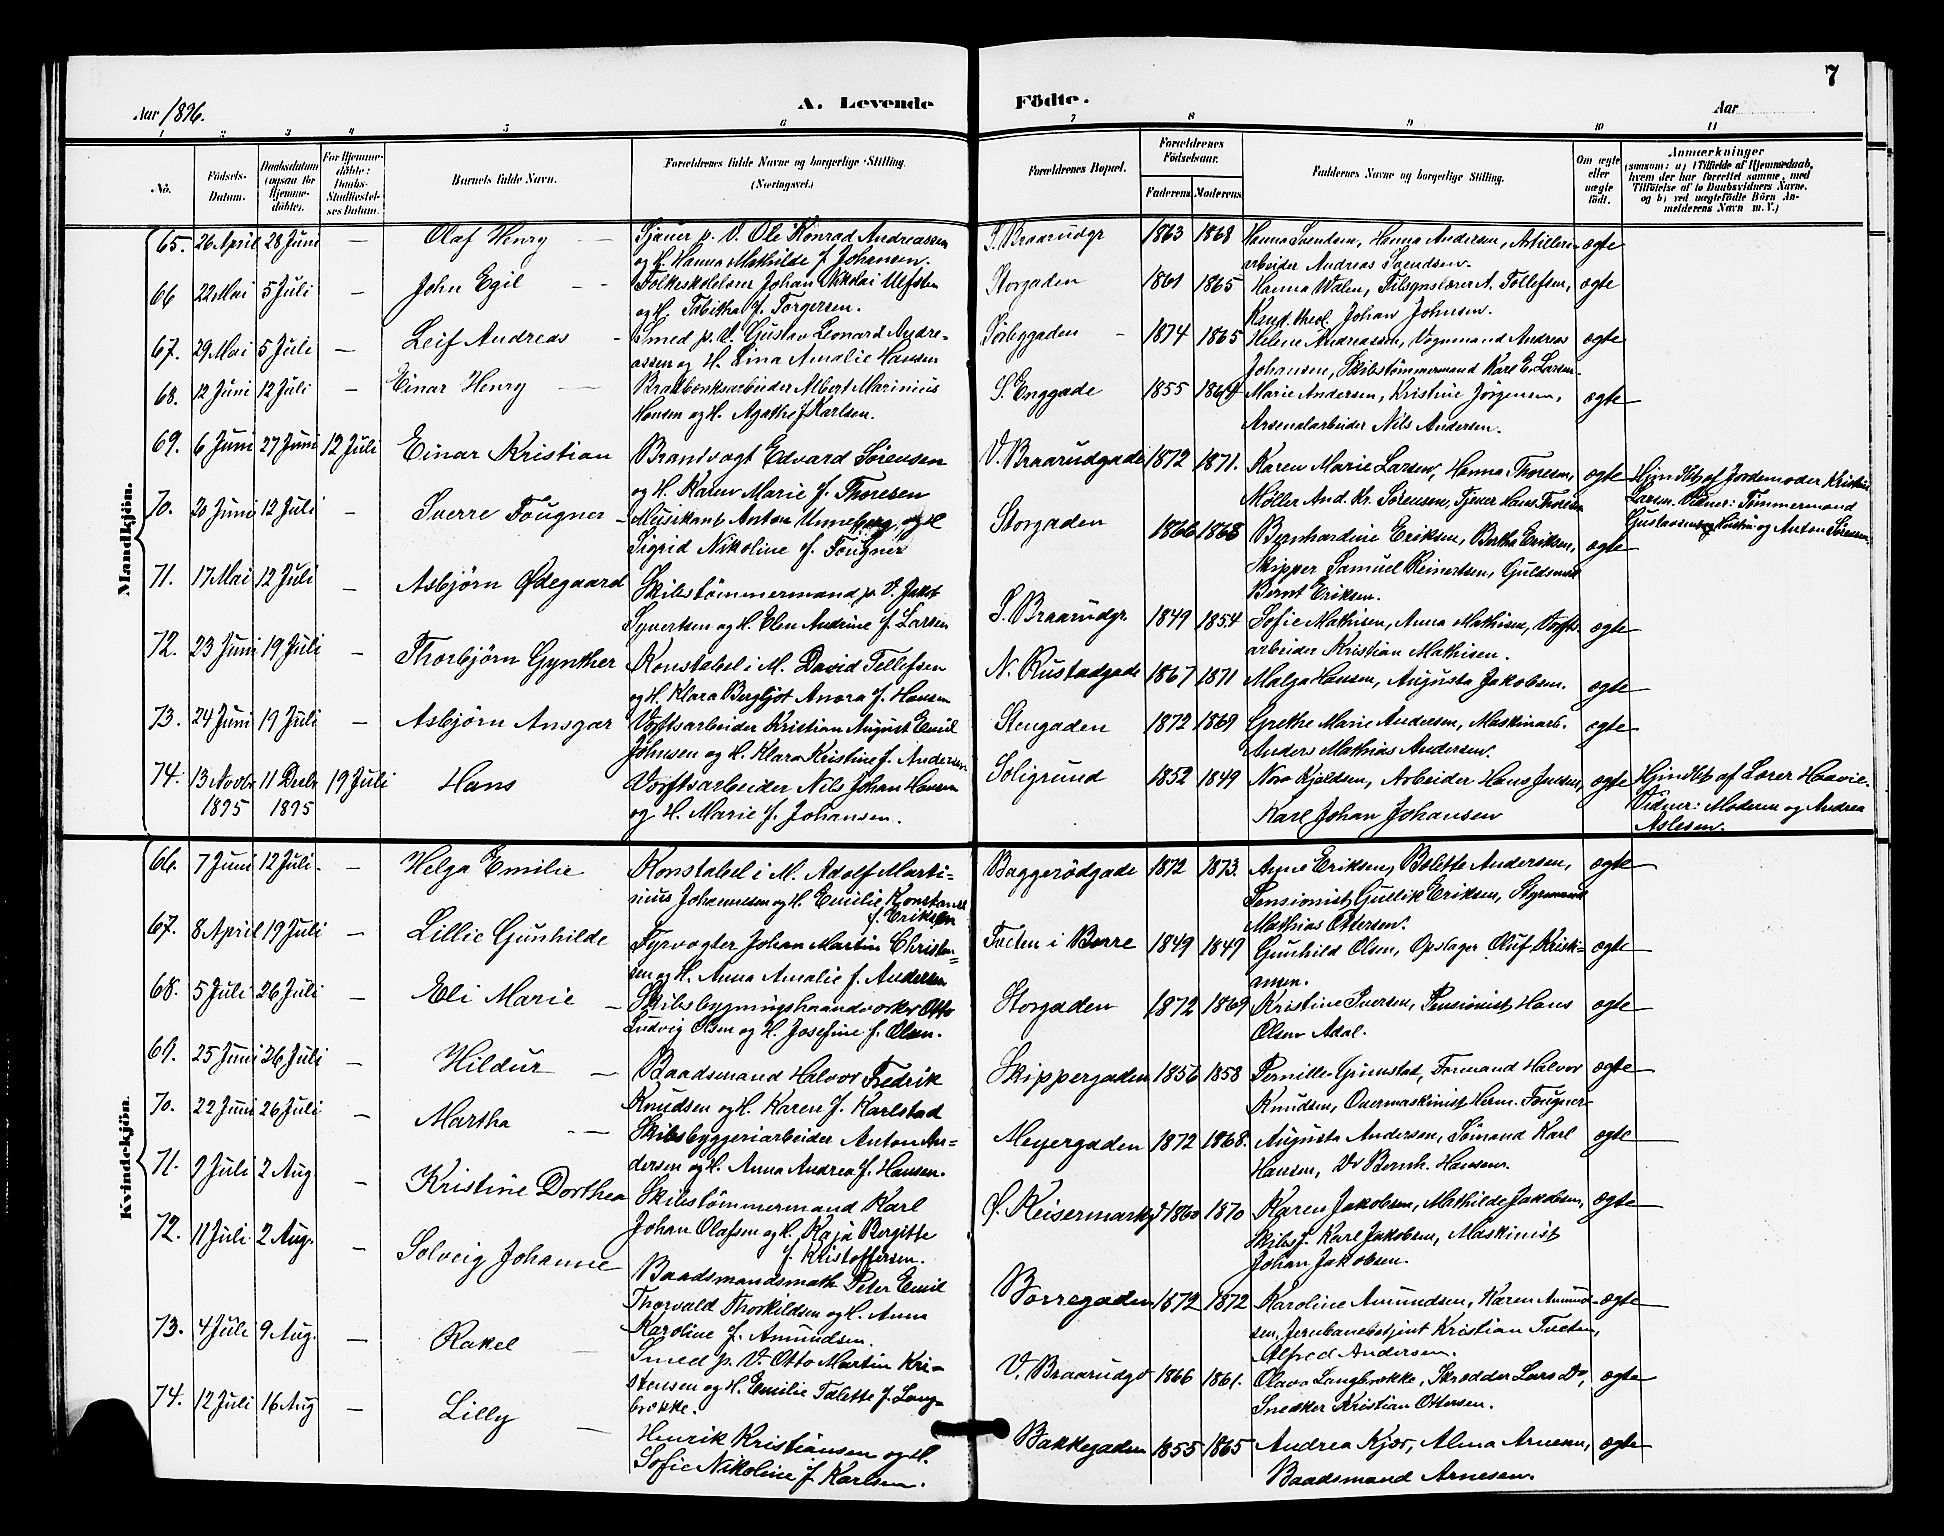 7
Aar 1896.
A. Levende
Födte.
Aar
1 2 3 4 5 6 7 8 9 10 11
No.
Födsels-
Datum.
Daabsdatum
(ogsaa for
Hjemme-
döbte).
For Hjemme-
döbte:
Daabs-
Stadfæstel-
ses Datum.
Barnets fulde Navn.
Forældrenes fulde Navne og borgerlige Stilling.
(Næringsvei.)
Forældrenes Bopæl.
Forældrenes
Födselsaar.
Faderens Moderens
Faddernes Navne og borgerlige Stilling.
Om ægte
eller
uægte
født.
Anmærkninger
(saasom: a) i Tilfælde af Hjemmedaab,
hvem der har forrettet samme, med
Tilföielse af to Daabsvidners Navne.
og b) ved uægtefödte Börn An-
melderens Navn m. V.)
Mandkjön.
65. 26 April 28 Juni — Olaf Henry — Sjauer p. V. Ole Konrad Andreassen
og H. Hanna Mathilde f. Johansen.
S. Braarudgr 1863 1868 Hanna Svendsen, Hanna Andersen, Artilleri- ægte
arbeider Andreas Svendsen.
66 22 Mai 5 Juli — John Egil — Folkeskolelærer Johan Nikolai Ulfsten
og H. Tabitha f. Torgersen.
Storgaden 1861 1865 Hanna Walen, Tilsynslærer A. Tollefsen, ægte
Kand. theol. Johan Johnsen.
67. 29 Mai 5 Juli — Leif Andreas — Smed p. V. Gustav Leonard Andre-
assen og H. Lina Amalie Hansen
1874 1865 Helene Andreassen, Vognmand Andreas ægte
Johansen, Skibstømmermand Karl E. Larsen.
68. 12 Juni 12 Juli — Einar Henry — Krudbruksarbeider Albert Marinius
Hansen og H. Agathe f. Karlsen.
S. Enggade 1855 1869 Marie Andersen, Kristine Jörgensen, ægte
Arsenalarbeider Nils Andersen.
69. 6 Juni 27 Juni 12 Juli Einar Kristian Brandvagt Edvard Sørensen
og H. Karen Marie f. Thoresen
V. Braarudgade 1872 1871. Karen Marie Larsen, Hanna Thoresen, ægte
Møller And. Kr. Sørensen, Tjener Hans Thoresen
Hjmdbt af Jordemoder Kristine
Larsen. Vidner: Tømmermand
Gustavsen og Hustru og Anton Sørensen.
70. 20 Juni 12 Juli — Sverre Fougner — Musikant Anton Unneberg, og H
Sigrid Nikoline f. Fougner
Storgaden 1866 1868 Bernhardine Eriksen, Bertha Eriksen, ægte
Skipper Samuel Reinertsen, Guldsmed
Bernt Eriksen.
71. 17 Mai 12 Juli — Asbjörn Ødegaard Skibstømmermand p. V. Jakob
Syvertsen og H. Elen Andrine f. Larsen
S. Braarudgr. 1849 1854 Sofie Mathisen, Anna Mathisen, Værfts- ægte
arbeider Kristian Mathisen.
72. 23 Juni 19 Juli — Thorbjörn Gynther Konstabel i M. David Tellefsen
og H. Klara Bergljot Anora f. Hansen
N. Rustadgade 1867 1871 Malga Hansen, Augusta Jakobsen. ægte
73. 24 Juni 19 Juli — Asbjörn Ansgar Værftsarbeider Kristian August Emil
Johnsen og H. Klara Kristine f. Andersen
Stengaden 1872 1869 Grethe Marie Andersen, Maskinarb. ægte
Anders Mathias Andersen.
74. 13 Novbr 11 Decbr 19 Juli Hans Værftsarbeider Nils Johan Hansen
1895 1895 og H. Marie f. Johansen.
Soligrund 1852 1849 Nora Kjeldsen, Arbeider Hans Jensen, ægte
Karl Johan Johansen
Hjmdbt af Lærer Haavie.
Vidner: Moderen og Andrea
Aslesen.
Kvindekjön.
66. 7 Juni 12 Juli — Helga Emilie Konstabel i M. Adolf Marti-
nius Johannesen og H. Emilie Konstanse
f. Eriksen
Baggerödgade 1872 1873. Anne Eriksen, Bolette Andersen, ægte
Pensionist Gullik Eriksen, Styrmand
Mathias Ottersen.
67. 8 April 19 Juli — Lillie Gunhilde Fyrvogter Johan Martin Christen-
sen og H. Anna Amalie f. Andersen
Tveten i Borre 1849 1849 Gunhild Olsen, Opslager Oluf Kristi- ægte
ansen.
68. 5 Juli 26 Juli — Eli Marie — Skibsbygningshaandverker Otto
Ludvig Olsen og H. Josefine f. Olsen.
Storgaden 1872 1869 Kristine Iversen, Pensionist Hans ægte
Olsen Adal.
69. 25 Juni 26 Juli — Hildur — Baadsmand Halvor Fredrik
Knudsen og H. Karen f. Karlstad
Skippergaden 1856 1858 Pernille Grimstad, Formand Halvor ægte
Knudsen, Overmaskinist Herm. Fougner
70. 22 Juni 26 Juli — Martha — Skibsbyggeriarbeider Anton An-
dersen og H. Anna Andrea f. Hansen.
Meyergaden 1872 1868. Augusta Andersen, Sömand Karl ægte
Hansen, Do Bernh. Hansen.
71. 9 Juli 2 Aug — Kristine Dorthea Skibstømmermand Karl
Johan Olafsen og H. Kaja Bergitte
f. Kristoffersen.
Ø. Keisermarkgd 1860 1870 Karen Jakobsen, Mathilde Jakobsen, ægte
Skibsf. Karl Jakobsen, Maskinist
Johan Jakobsen.
72. 11 Juli 2 Aug. — Solveig Johanne Baadsmandsmath Peter Emil
Thorvald Thorkildsen og H. Anna
Karoline f. Amundsen.
Borregaden 1872 1872 Karoline Amundsen, Karen Amund- ægte
sen, Jernbanebetjent Kristian Tveten,
Alfred Andersen.
73. 4 Juli 9 Aug. — Rakel — Smed p. V. Otto Martin Kri-
stensen og H. Emilie Talette f. Lang-
brække.
V. Braarudgd 1866 1861. Olava Langbrække, Skrædder Lars Do, ægte
Snedker Kristian Ottersen.
74. 12 Juli 16 Aug — Lilly — Henrik Kristiansen og H.
Sofie Nikoline f. Karlsen.
Bakkegaden 1855 1865 Andrea Kjær, Alma Arnesen, ægte
Baadsmand Arnesen.